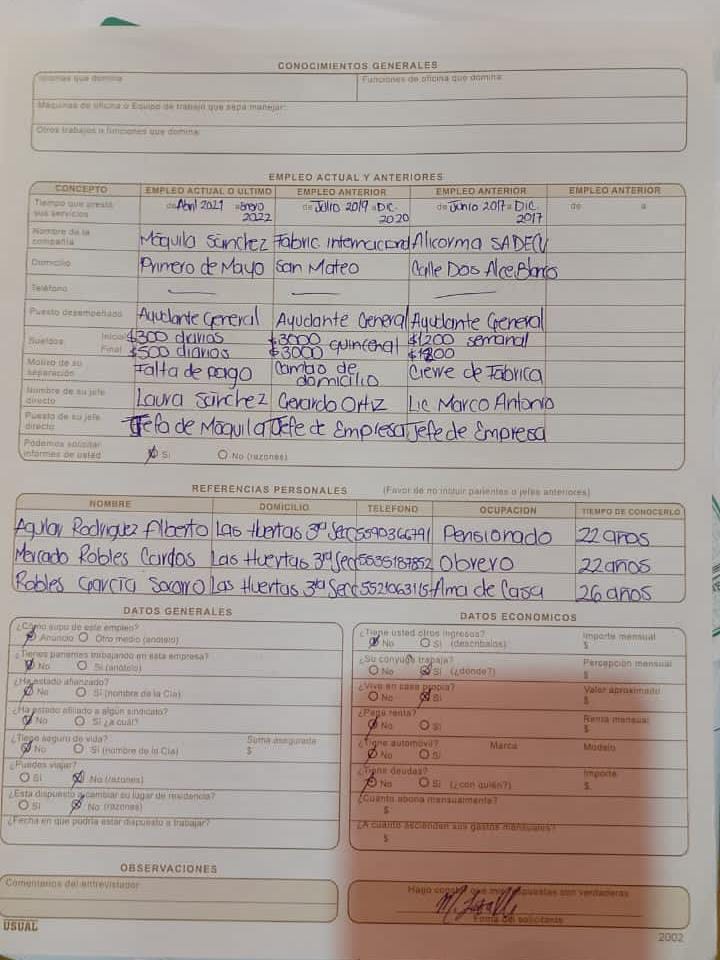 CONOCIMIENTOS GENERALES
Idiomas que domina Funciones de oficina que domina:
Máquinas de oficina o Equipo de trabajo que sepa manejar:
Otros trabajos o funciones que domina:
EMPLEO ACTUAL Y ANTERIORES
CONCEPTO EMPLEO ACTUAL O ULTIMO EMPLEO ANTERIOR EMPLEO ANTERIOR EMPLEO ANTERIOR
Tiempo que prestó sus servicios de Abril 2021 a Enero 2022 de Julio 2019 a Dic. 2020 de Junio 2017 a Dic. 2017 de a
Nombre de la compañía Maquila Sánchez Fabric internacional Alicorma SADECV
Domicilio Primero de Mayo San Mateo Calle Dos Alce Blanco
Teléfono
Puesto desempeñado Ayudante General Ayudante General Ayudante General
Sueldos Inicial $300 diarios $3000 quincenal $1200 semanal
Final $500 diarios $3000 $1800
Motivo de su separación Falta de pago Cambio de domicilio Cierre de Fabrica
Nombre de su jefe directo Laura Sánchez Gerardo Ortiz Lic Marco Antonio
Puesto de su jefe directo Jefa de Maquila Jefe de Empresa Jefe de Empresa
Podemos solicitar informes de usted Si No (razones)
REFERENCIAS PERSONALES (Favor de no incluir parientes o jefes anteriores)
NOMBRE DOMICILIO TELEFONO OCUPACION TIEMPO DE CONOCERLO
Aguilar Rodriguez Alberto Las Huertas 3ra Secc 5590366791 Pensionado 22 años
Mercado Robles Carlos Las Huertas 3ra Secc 5535187852 Obrero 22 años
Robles García Socorro Las Huertas 3ra Secc 5521063115 Ama de Casa 26 años
DATOS GENERALES DATOS ECONOMICOS
¿Cómo supo de este empleo?
Anuncio Otro medio (anótelo)
¿Tienes parientes trabajando en esta empresa?
No Si (anótelo)
¿Ha estado afianzado?
No Si (nombre de la Cía)
¿Ha estado afiliado a algún sindicato?
No Si ¿a cuál?
¿Tiene seguro de vida? Suma asegurada
No Si (nombre de la Cía) $
¿Puedes viajar?
Si No (razones)
¿Esta dispuesto a cambiar su lugar de residencia?
Si No (razones)
¿Fecha en que podría estar dispuesto a trabajar?
¿Tiene usted otros ingresos? Importe mensual
No Si (descríbalos) $
¿Su conyuge trabaja? Percepción mensual
No Si (¿dónde?) $
¿Vive en casa propia? Valor aproximado
No Si $
¿Paga renta? Renta mensual
No Si $
¿Tiene automóvil? Marca Modelo
No Si
¿Tiene deudas? Importe
No Si (¿con quién?) $
¿Cuánto abona mensualmente?
$
¿A cuánto ascienden sus gastos mensuales?
$
OBSERVACIONES
Comentarios del entrevistador
Hago constar que mis respuestas son verdaderas
Firma del solicitante
USUAL
2002